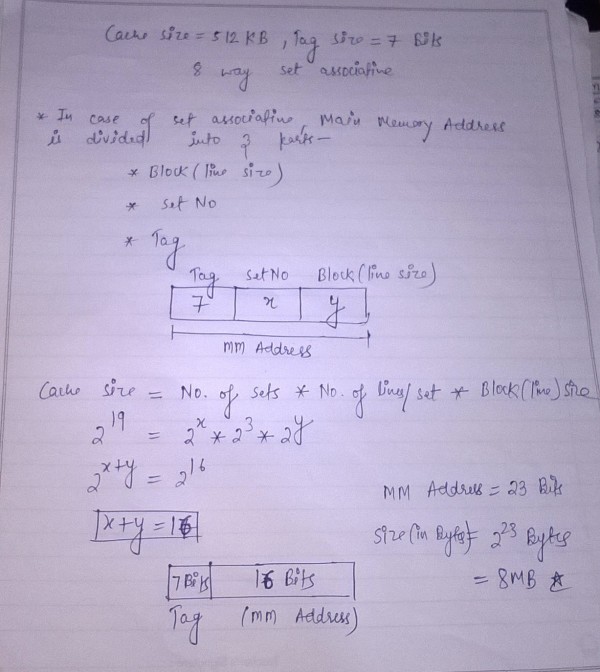 Cache size = 512 KB, Tag size = 7 Bits
8 way set associative
* In case of set associative, Main Memory Address
is divided into 3 parts -
* Block (line size)
* Set No
* Tag
Tag Set No Block (line size)
7 x y
MM Address
Cache size = No. of sets * No. of lines/set * Block (line) size
2^19 = 2^x * 2^3 * 2^y
2^x+y = 2^16
x+y = 16
MM Address = 23 Bits
Size (in Bytes) = 2^23 Bytes
= 8MB
7 Bits 16 Bits
Tag (MM Address)